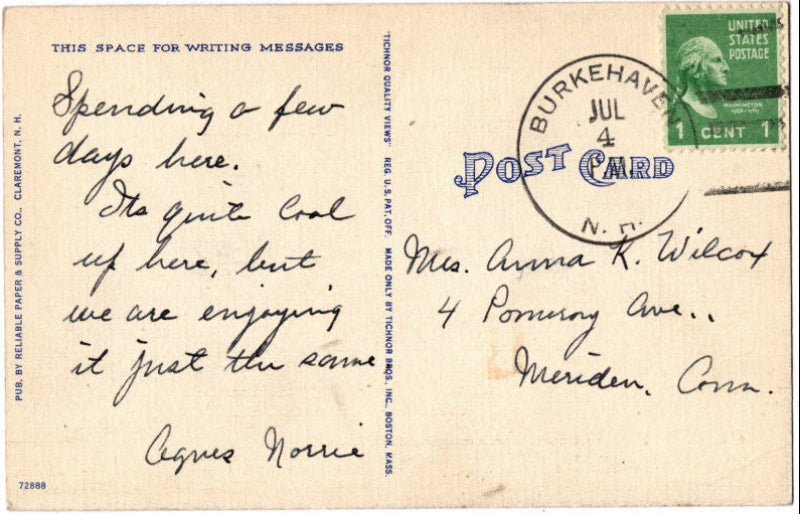 THIS SPACE FOR WRITING MESSAGES
Spending a few
days here.
Its quite cool
up here, but
we are enjoying
it just the same
Agnes Norrie
72888
PUB. BY RELIABLE PAPER & SUPPLY CO., CLAREMONT, N. H.
"TICHNOR QUALITY VIEWS" REG. U. S. PAT. OFF. MADE ONLY BY TICHNOR BROS., INC., BOSTON, MASS.
POST CARD
BURKEHAVEN
JUL
4
P.M.
N. H.
UNITED
STATES
POSTAGE
WASHINGTON
1 CENT 1
Mrs. Anna K. Wilcox
4 Pomeroy Ave..
Meriden, Conn.